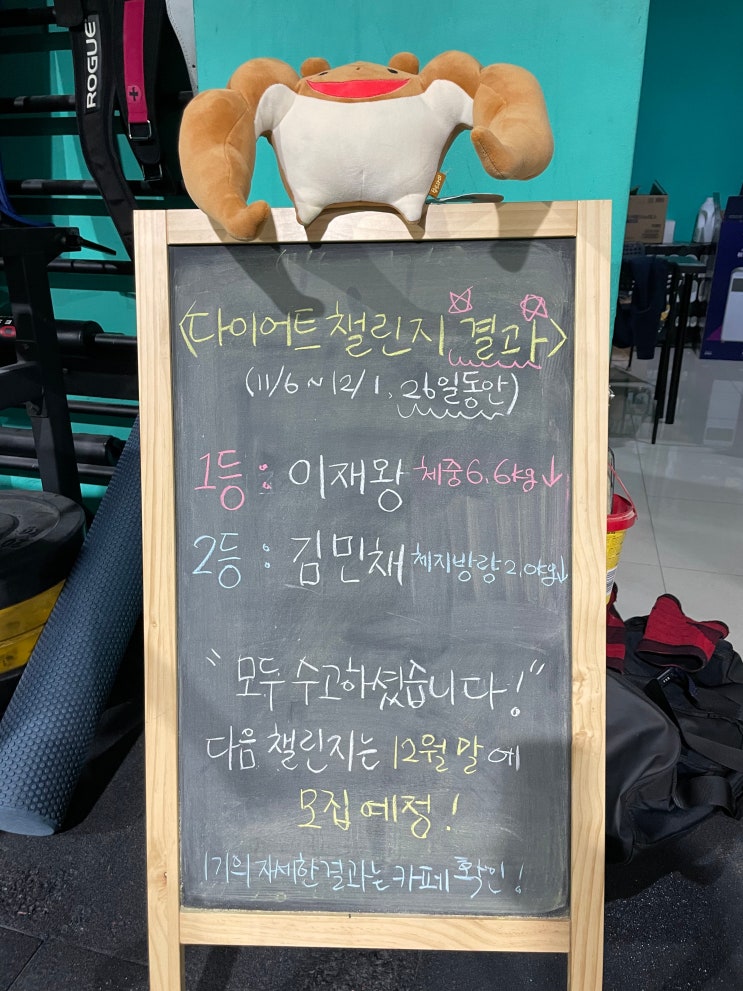 ROGUE
<다이어트 챌린지 결과>
(11/6 ~ 12/1, 26일동안)
1등 : 이재왕 체중 6.6%↓
2등 : 김민채 체지방량 2.0%↓
"모두 수고하셨습니다!"
다음 챌린지는 12월 말에
모집 예정!
1기의 자세한 결과는 카페 확인!